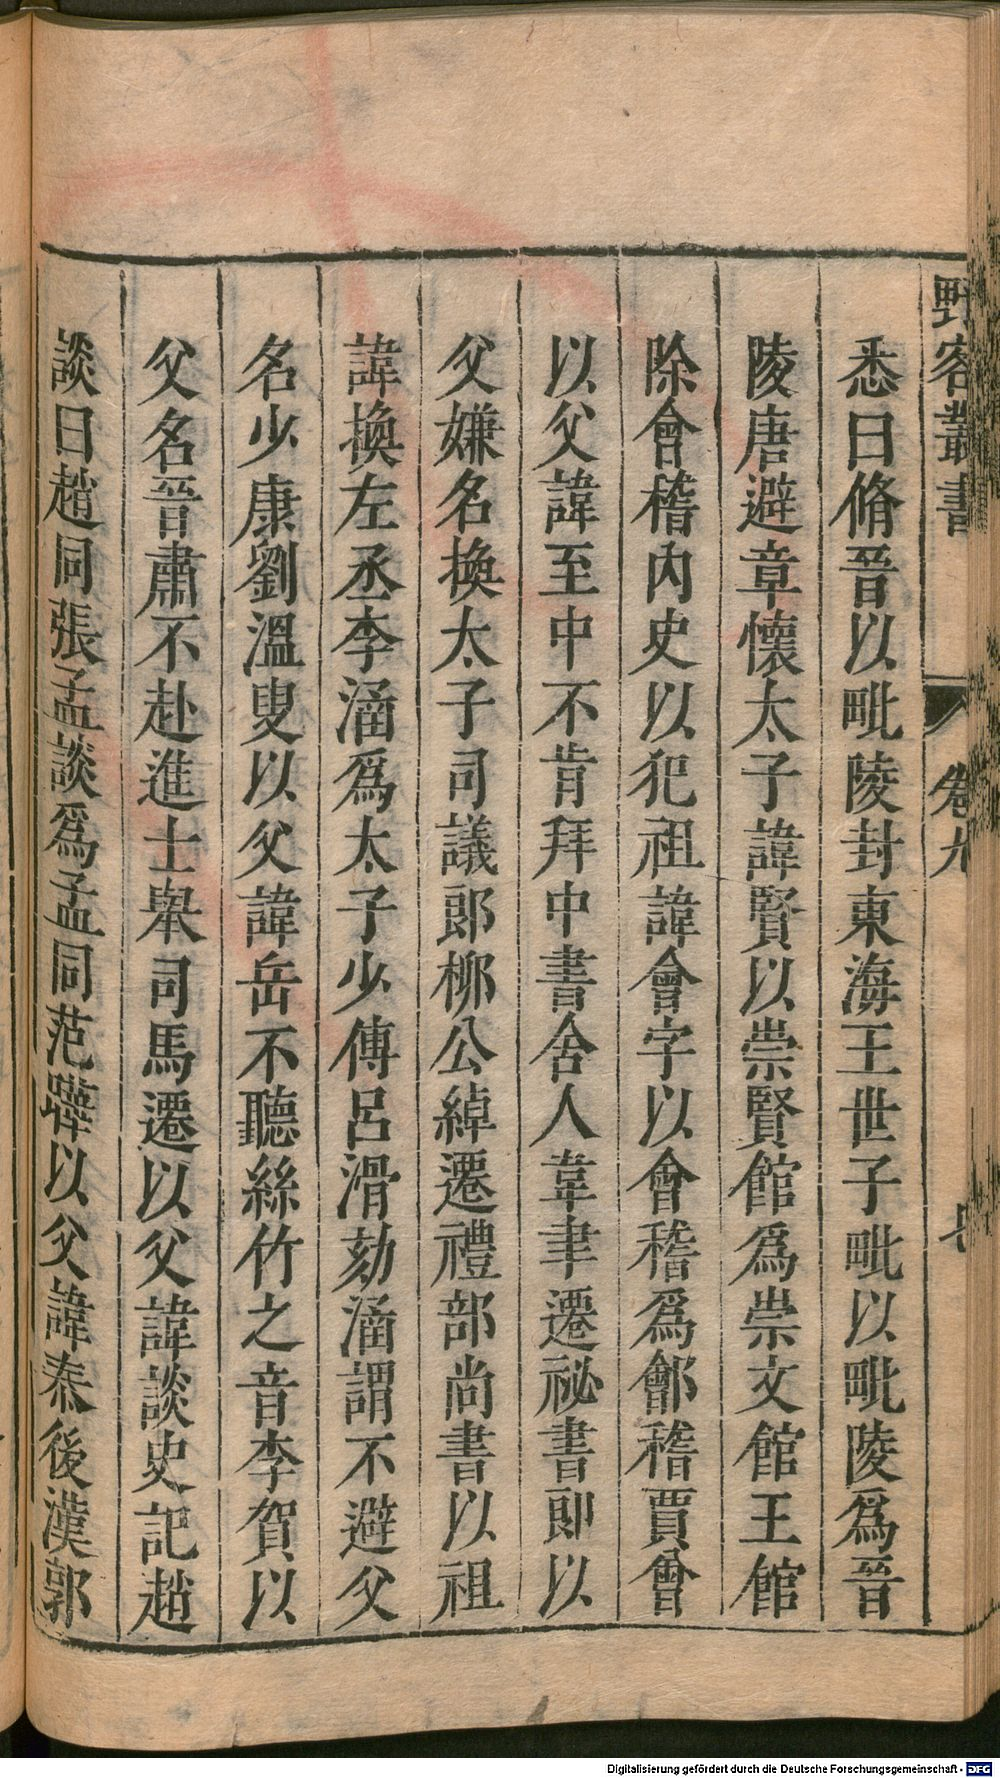 野客叢書 卷九
悉曰脩晉以毗陵封東海王世子毗以毗陵爲晉
陵唐避章懷太子諱賢以崇賢館爲崇文館王館
除會稽內史以犯祖諱會字以會稽爲鄶稽賈曾
以父諱至中不肯拜中書舍人韋聿遷祕書郎以
父嫌名換太子司議郎柳公綽遷禮部尚書以祖
諱換左丞李涵爲太子少傅呂滑劾涵謂不避父
名少康劉溫叟以父諱岳不聽絲竹之音李賀以
父名晉肅不赴進士舉司馬遷以父諱談史記趙
談曰趙同張孟談爲孟同范曄以父諱泰後漢郭
Digitalisierung gefördert durch die Deutsche Forschungsgemeinschaft - DFG